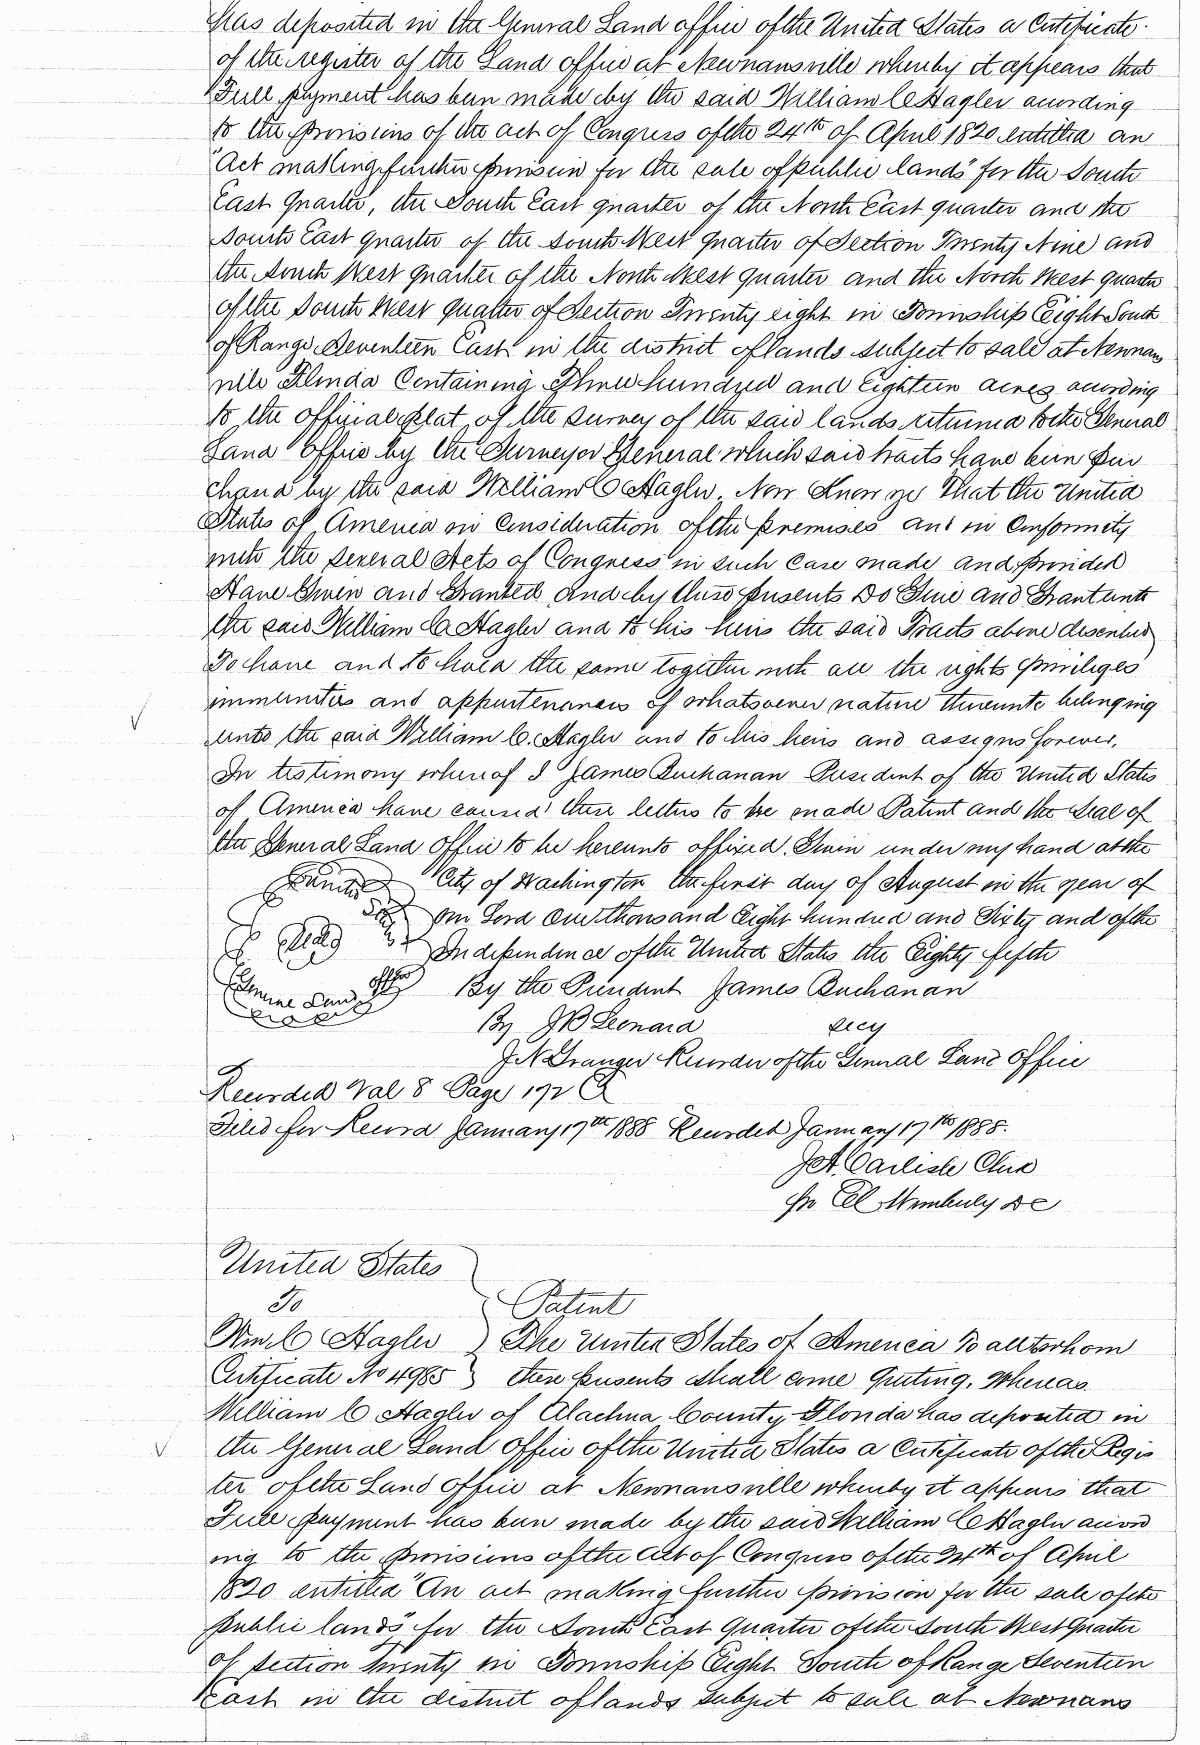 has deposited in the General Land office of the United States a Certificate
of the register of the Land office at Newnansville whereby it appears that
Full payment has been made by the said William C Hagler acording
to the provisions of the act of Congress of the 24th of April 1820 entitled an
"Act making further provision for the sale of public lands" for the South
East Quarter, the South East quarter of the North East quarter and the
South East quarter of the South West quarter of Section Twenty Nine and
the South West quarter of the North West quarter and the North West quarter
of the South West quarter of Section Twenty eight in Township Eight South
of Range Seventeen East in the district of lands subject to sale at Newnans
ville Florida Containing Three hundred and Eighteen acres acording
to the official plat of the survey of the said lands returned to the General
Land Office by the Surveyor General which said tracts have been pur
chased by the said William C Hagler. Now Know ye That the United
States of America in Consideration of the premises and in Conformity
with the several Acts of Congress in such case made and provided
Have Given and Granted and by these presents Do Give and Grant unto
the said William C Hagler and to his heirs the said Tracts above described
To have and to hold the same together with all the rights priviliges
immunities and appurtenances of whatsoever nature thereunto belonging
unto the said William C. Hagler and to his heirs and assigns forever.
In testimony whereof I James Buchanan President of the United States
of America have caused these letters to be made Patent and the Seal of
the General Land Office to be hereunto affixed. Given under my hand at the
United City of Washington the first day of August in the year of
our Lord One thousand Eight hundred and Sixty and of the
Seal Independence of the United States the Eighty fifth
General Land office By the President James Buchanan
By J B Leonard secy
J N Granger Recorder of the General Land Office
Recorded Vol 8 Page 172
Filed for Record January 17th 1888 Recorded January 17th 1888.
J A. Carlisle Clerk
pr C L Wimberly D C
United States
To Patent
Wm C Hagler The United States of America To all to whom
Certificate No 4985 these presents shall come Greeting. Whereas
William C Hagler of Alachua County Florida has deposited in
the General Land Office of the United States a Certificate of the Regis
ter of the Land Office at Newnansville whereby it appears that
Full payment has been made by the said William C Hagler accord
ing to the provisions of the act of Congress of the 24th of April
1820 entitled "An act making further provision for the sale of the
public lands" for the South East Quarter of the South West Quarter
of Section Twenty in Township Eight South of Range Seventeen
East in the district of lands subject to sale at Newnans